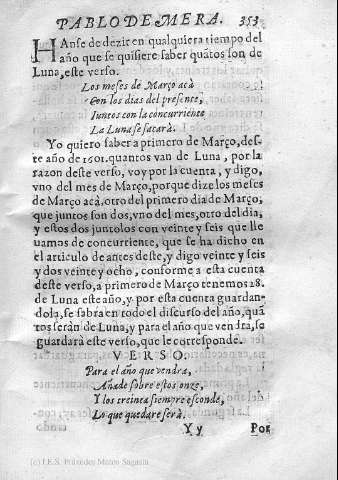 PABLO DE MERA. 353
HAnse de dezir en qualquiera tiempo del
año que se quisiere saber quãtos son de
Luna, este verso.
Los meses de Março acà
Con los dias del presente,
Iuntos con la concurriente
La Luna se sacarà.
Yo quiero saber a primero de Março, des-
te año de 1601. quantos van de Luna, por la
razon deste verso, voy por la cuenta, y digo,
vno del mes de Março, porque dize los meses
de Março acà, otro del primero dia de Março,
que juntos son dos, vno del mes, otro del dia,
y estos dos juntolos con veinte y seis que lle
uamos de concurriente, que se ha dicho en
el articulo de antes deste, y digo veinte y seis
y dos veinte y ocho, conforme a esta cuenta
deste verso, a primero de Março tenemos 28.
de Luna este año, y por esta cuenta guardan-
dola, se sabra en todo el discurso del año, quã
tos serán de Luna, y para el año que vendra, se
guardarà este verso, que le corresponde.
VERSO.
Para el año que vendra,
Añade sobre estos onze,
Y los treinta siempre esconde,
Lo que quedare serà.
Yy Por
(c) I.E.S. Práxedes Mateo Sagasta